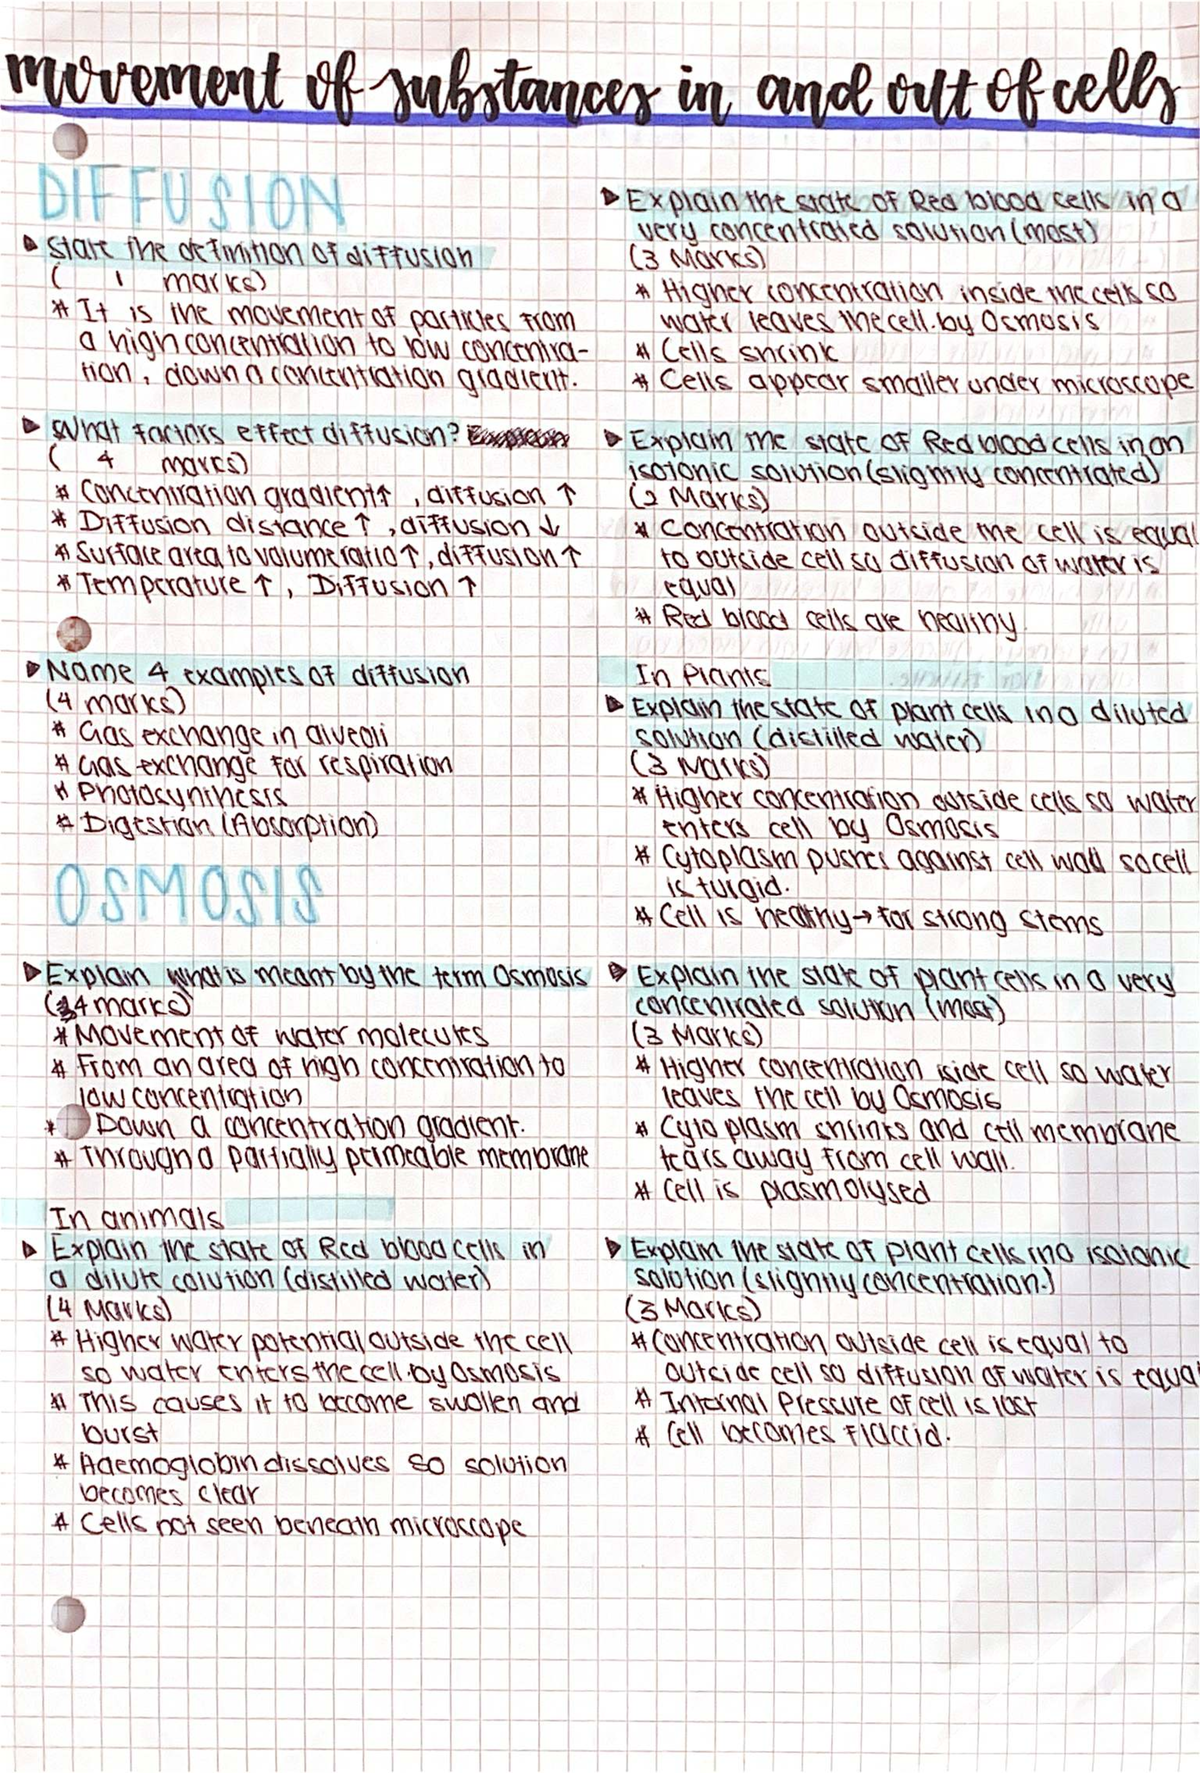 movement of substances in and out of cells
DIFFUSION
State the definition of diffusion
( 1 marks)
* It is the movement of particles from
a high concentration to low concentra-
tion, down a concentration gradient.
What factors effect diffusion?
( 4 marks)
* Concentration gradient↑, diffusion ↑
* Diffusion distance ↑, diffusion ↓
* Surface area to volume ratio↑, diffusion ↑
* Temperature ↑, Diffusion ↑
Name 4 examples of diffusion
(4 marks)
* Gas exchange in alveoli
* Gas exchange for respiration
* Photosynthesis
* Digestion (Absorption)
OSMOSIS
Explain what is meant by the term Osmosis
(4 marks)
* Movement of water molecules
* From an area of high concentration to
low concentration
* Down a concentration gradient.
* Through a partially permeable membrane
In animals
Explain the state of Red blood cells in
a dilute solution (distilled water)
(4 Marks)
* Higher water potential outside the cell
so water enters the cell by Osmosis
* This causes it to become swollen and
burst
* Haemoglobin dissolves so solution
becomes clear
* Cells not seen beneath microscope
Explain the state of Red blood cells in a
very concentrated solution (most)
(3 Marks)
* Higher concentration inside the cells so
water leaves the cell by Osmosis
* Cells shrink
* Cells appear smaller under microscope
Explain the state of Red blood cells in an
isotonic solution (slightly concentrated)
(2 Marks)
* Concentration outside the cell is equal
to outside cell so diffusion of water is
equal
* Red blood cells are healthy
In Plants
Explain the state of plant cells in a diluted
solution (distilled water)
(3 Marks)
* Higher concentration outside cells so water
enters cell by Osmosis
* Cytoplasm pushes against cell wall so cell
is turgid.
* Cell is healthy → for strong stems
Explain the state of plant cells in a very
concentrated solution (most)
(3 Marks)
* Higher concentration iside cell so water
leaves the cell by Osmosis
* Cytoplasm shrinks and cell membrane
tears away from cell wall.
* Cell is plasmolysed
Explain the state of plant cells in a isotonic
solution (slightly concentration.)
(3 Marks)
* Concentration outside cell is equal to
outside cell so diffusion of water is equal
* Internal Pressure of cell is lost
* Cell becomes flaccid.